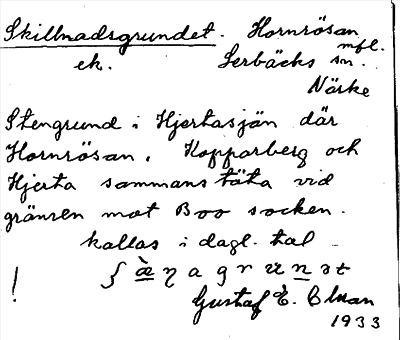 Skillnadsgrundet. Hornrösan
ek. Lerbäcks sn. mfl.
Närke
Stengrund i Hjertasjön där
Hornrösan, Kopparberg och
Hjerta sammanstöta vid
gränsen mot Boo socken.
kallas i dagl. tal
Gustaf E. 
1933